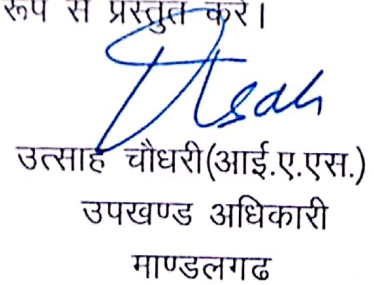 रूप से प्रस्तुत करे।
उत्साह चौधरी(आई.ए.एस.)
उपखण्ड अधिकारी
माण्डलगढ